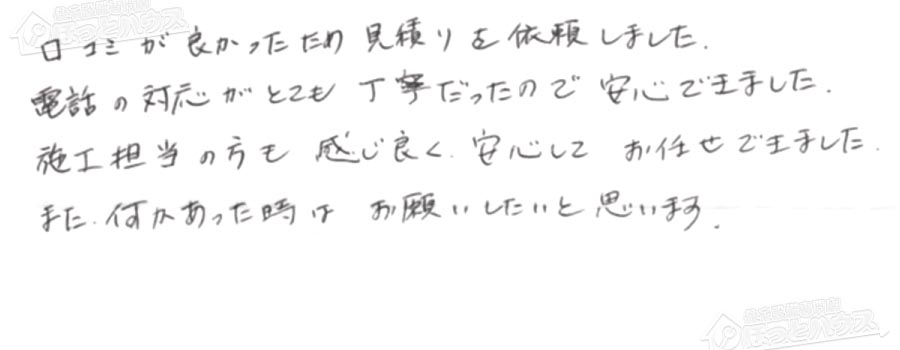 口コミが良かったため見積りを依頼しました.
電話の対応がとても丁寧だったので安心できました.
施工担当の方も感じ良く、安心してお任せできました.
また、何かあった時はお願いしたいと思います.
ほっとハウス
ほっとハウス